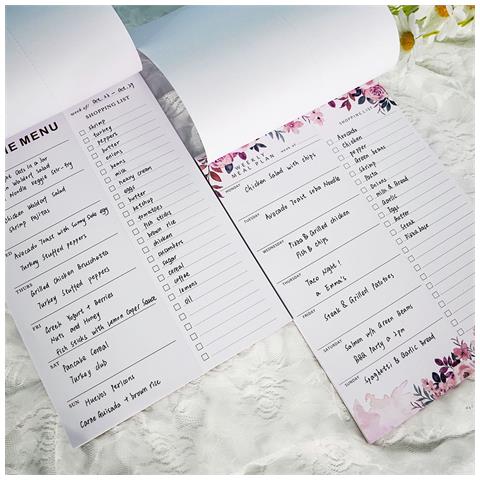 NE MENU
week of: Oct. 23 - Oct. 29
SHOPPING LIST
shrimp
turkey
peppers
butter
onions
beans
milk
heavy cream
eggs
butter
ketchup
tomatoes
fish sticks
brown rice
chicken
cucumbers
sugar
cereal
coffee
lemons
oil
Oats in a Jar
Waldorf Salad
Noodle Veggie Stir-fry
Chicken Waldorf Salad
Shrimp Fajitas
Avocado Toast with Sunny Side egg
Turkey stuffed peppers
THURS
Grilled Chicken Bruschetta
Turkey stuffed peppers
FRI
Greek Yogurt + Berries
Nuts and Honey
Fish sticks with Lemon Caper Sauce
SAT
Pancake Cereal
Turkey club
SUN
Huevos Pericons
Carne Guisada + brown rice
WEEKLY
MEAL PLAN
WEEK OF
MONDAY
Chicken Salad with chips
TUESDAY
Avocado Toast soba Noodle
WEDNESDAY
Pizza & Grilled chicken
Fish & chips
THURSDAY
Taco Night!
@ Emma's
FRIDAY
Steak & Grilled Potatoes
SATURDAY
Salmon w/n Green Beans
BBQ Party @ 2pm
SUNDAY
Spaghetti & Garlic Bread
SHOPPING LIST
Avocado
Chicken
pepper
Shrimp
Green beans
Pasta
Onions
milk & Bread
Garlic
Eggs
Butter
Steak
Pizza base